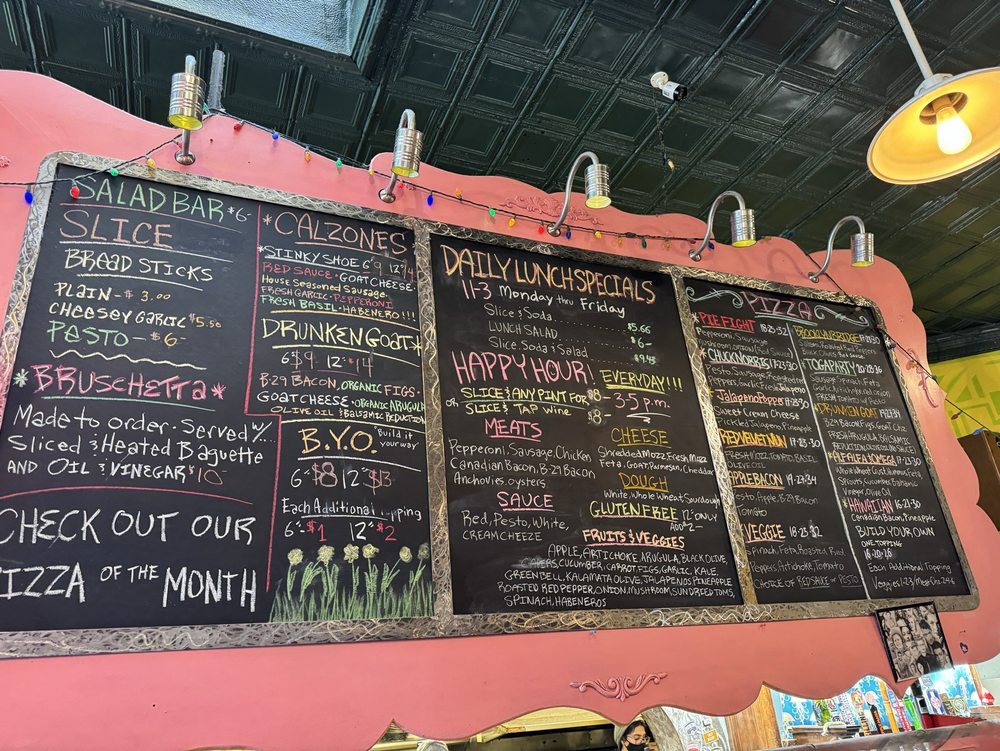 SALAD BAR $6-
SLICE
BREAD STICKS
PLAIN - $ 3.00
CHEESEY GARLIC $5.50
PESTO - $6-
*BRUSCHETTA*
Made to order. Served w/...
Sliced & Heated Baguette
AND OIL & VINEGAR $10-
CHECK OUT OUR
PIZZA OF THE MONTH
*CALZONES
*STINKY SHOE 6"9 12"14
RED SAUCE · GOAT CHEESE ·
House Seasoned Sausage ·
FRESH GARLIC · PEPPERONI
FRESH BASIL · HABENERO!!!
DRUNKEN GOAT*
6"$9 12"$14
B-29 BACON, ORGANIC FIGS ·
GOAT CHEESE · ORGANIC ARUGULA
OLIVE OIL & BALSAMIC REDUCTION
B.Y.O. "Build it your way"
6"$8 12"$13
Each Additional Topping
6"-$1 12"$2
DAILY LUNCH SPECIALS
11-3 Monday thru Friday
Slice & Soda.......... $5.66
LUNCH SALAD.......... $6-
Slice, Soda & Salad.......... $9.43
HAPPY HOUR! EVERYDAY!!!
SLICE & ANY PINT FOR $8
or SLICE & TAP Wine $8-
3-5 p.m.
MEATS
Pepperoni, Sausage, Chicken
Canadian Bacon, B-29 Bacon
Anchovies, oysters
SAUCE
Red, Pesto, White,
CREAM CHEEZE
CHEESE
Shredded Mozz, Fresh Mozz
Feta, Goat, Parmesan, Cheddar
DOUGH
White, Whole Wheat, Sourdough
GLUTEN FREE 12" ONLY
ADD $2-
FRUITS & VEGGIES
APPLE, ARTICHOKE, ARUGULA, BLACK OLIVE,
CAPERS, CUCUMBER, CARROT, FIGS, GARLIC, KALE
GREEN BELL, KALAMATA OLIVE, JALAPENOS, PINEAPPLE
ROASTED RED PEPPER, ONION, MUSHROOM, SUN DRIED TOMS,
SPINACH, HABENEROS
PIZZA
*PIE FIGHT 18-25-32
Pepperoni, Sausage
Mushroom, onion (Red Sauce)
*CHUCK NORRIS
Pesto, Sausage, Pickled
Peppers, Garlic, Fresh
Jalapeno Popper
Sweet Cream Cheese
Pickled Jalapeno, Pineapple
RED VELATION
FRESH MOZZ, TOMATO, BASIL
OLIVE OIL
APPLE BACON 17-23-34
Pesto, Apple, B-29 Bacon
Tomato
VEGGIE 18-25-32
Spinach, Feta, Roasted Red
Peppers, Artichoke, Tomato
CHOICE OF RED SAUCE or PESTO
BROOKLYN BRIDGE
Salami, Roasted Red Peppers
Black Olives
TOGA PARTY
Sausage, Spinach, Feta
FRESH TOMATO w/ PESTO
DRUNKEN GOAT
BACON, FIGS, GOAT CHZ
FRESH ARUGULA, BALSAMIC
REDUCTION
Cucumber, Balsamic
Vinegar, Olive Oil
*HAWAIIAN 16-23-30
Canadian Bacon, Pineapple
BUILD YOUR OWN
ONE TOPPING
Each Additional Topping